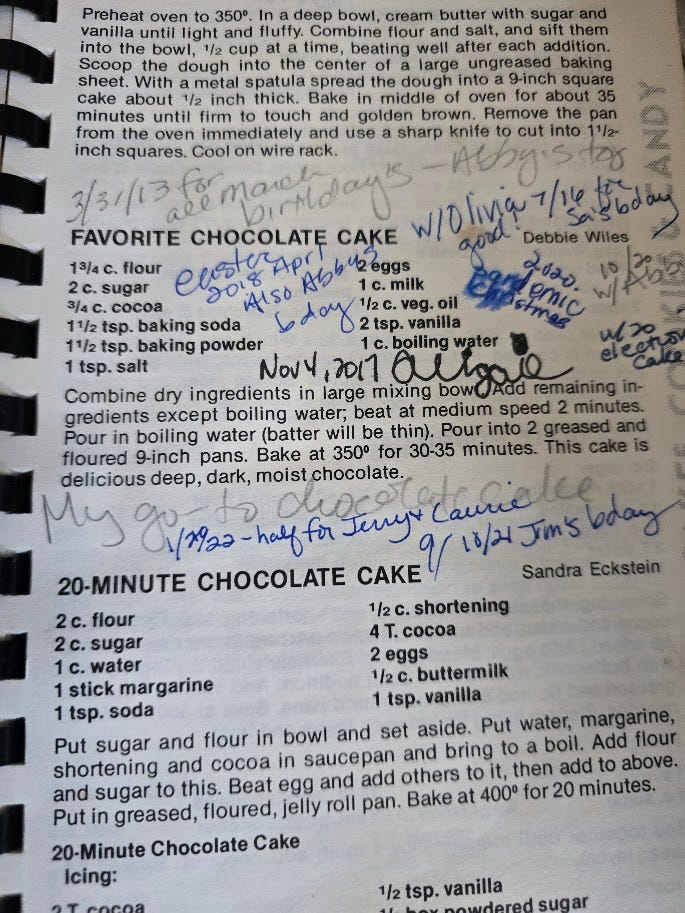 Preheat oven to 350º. In a deep bowl, cream butter with sugar and
vanilla until light and fluffy. Combine flour and salt, and sift them
into the bowl, 1/2 cup at a time, beating well after each addition.
Scoop the dough into the center of a large ungreased baking
sheet. With a metal spatula spread the dough into a 9-inch square
cake about 1/2 inch thick. Bake in middle of oven for about 35
minutes until firm to touch and golden brown. Remove the pan
from the oven immediately and use a sharp knife to cut into 11/2-
inch squares. Cool on wire rack.
3/31/13 for
all March
birthday's - Abby's too
w/Olivia 7/16 for
Sa's bday
good!
FAVORITE CHOCOLATE CAKE
Debbie Wiles
13/4 c. flour
2 c. sugar
3/4 c. cocoa
11/2 tsp. baking soda
11/2 tsp. baking powder
1 tsp. salt
easter
2018 April
Also Abbys
bday
2 eggs
1 c. milk
1/2 c. veg. oil
2 tsp. vanilla
1 c. boiling water
2020
Pandemic
Christmas
10/20
w/Abby
w/20
election
cake
Nov 4, 2017 Abigail
Combine dry ingredients in large mixing bowl. Add remaining in-
gredients except boiling water; beat at medium speed 2 minutes.
Pour in boiling water (batter will be thin). Pour into 2 greased and
floured 9-inch pans. Bake at 350º for 30-35 minutes. This cake is
delicious deep, dark, moist chocolate.
My go-to chocolate cake
1/29/22 - half for Jerry + Laurie
9/18/21 Jim's bday
20-MINUTE CHOCOLATE CAKE
Sandra Eckstein
2 c. flour
2 c. sugar
1 c. water
1 stick margarine
1 tsp. soda
1/2 c. shortening
4 T. cocoa
2 eggs
1/2 c. buttermilk
1 tsp. vanilla
Put sugar and flour in bowl and set aside. Put water, margarine,
shortening and cocoa in saucepan and bring to a boil. Add flour
and sugar to this. Beat egg and add others to it, then add to above.
Put in greased, floured, jelly roll pan. Bake at 400º for 20 minutes.
20-Minute Chocolate Cake
Icing:
2 T. cocoa
1/2 tsp. vanilla
box powdered sugar